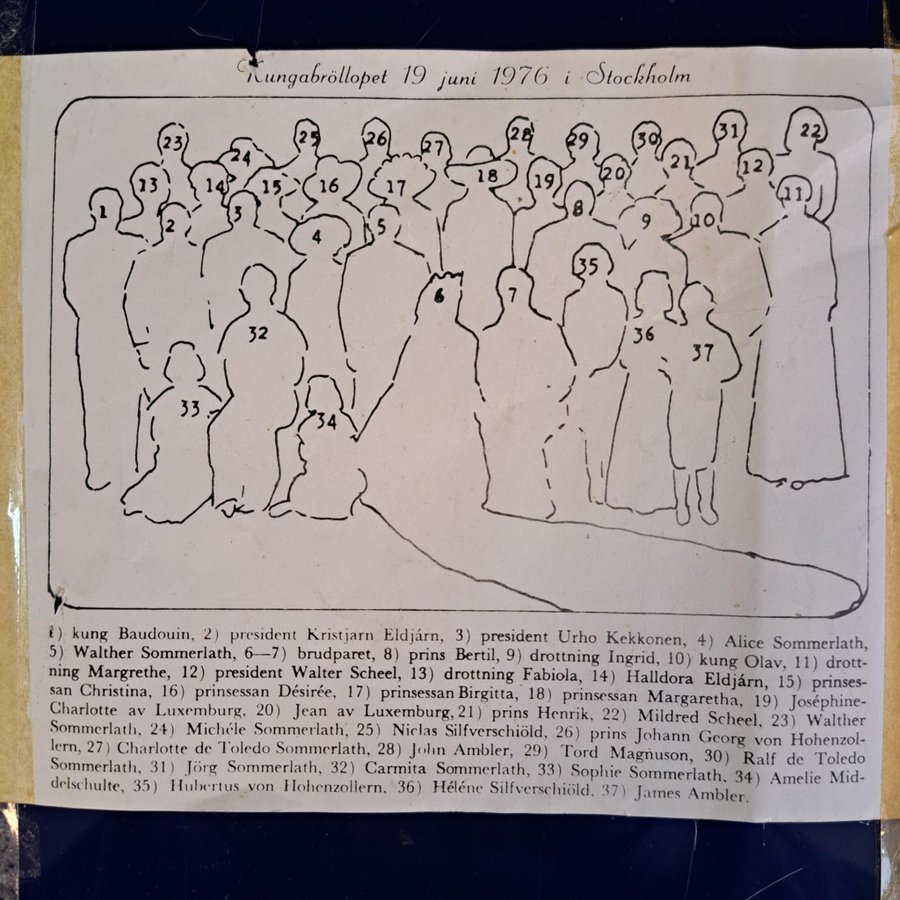 Kungabröllopet 19 juni 1976 i Stockholm
23 25 26 27 28 29 30 31 22
24 21 12
13 14 15 16 17 18 19 20 11
1 2 3 4 5 8 9 10
6 7 35
32 36 37
33 34
1) kung Baudouin, 2) president Kristjarn Eldjárn, 3) president Urho Kekkonen, 4) Alice Sommerlath,
5) Walther Sommerlath, 6—7) brudparet, 8) prins Bertil, 9) drottning Ingrid, 10) kung Olav, 11) drott-
ning Margrethe, 12) president Walter Scheel, 13) drottning Fabiola, 14) Halldora Eldjárn, 15) prinses-
san Christina, 16) prinsessan Désirée, 17) prinsessan Birgitta, 18) prinsessan Margaretha, 19) Joséphine-
Charlotte av Luxemburg. 20) Jean av Luxemburg, 21) prins Henrik, 22) Mildred Scheel, 23) Walther
Sommerlath, 24) Michéle Sommerlath, 25) Niclas Silfverschiöld, 26) prins Johann Georg von Hohenzol-
lern, 27) Charlotte de Toledo Sommerlath, 28) John Ambler, 29) Tord Magnuson, 30) Ralf de Toledo
Sommerlath, 31) Jörg Sommerlath, 32) Carmita Sommerlath, 33) Sophie Sommerlath. 34) Amelie Mid-
delschulte, 35) Hubertus von Hohenzollern, 36) Héléne Silfverschiöld, 37) James Ambler.